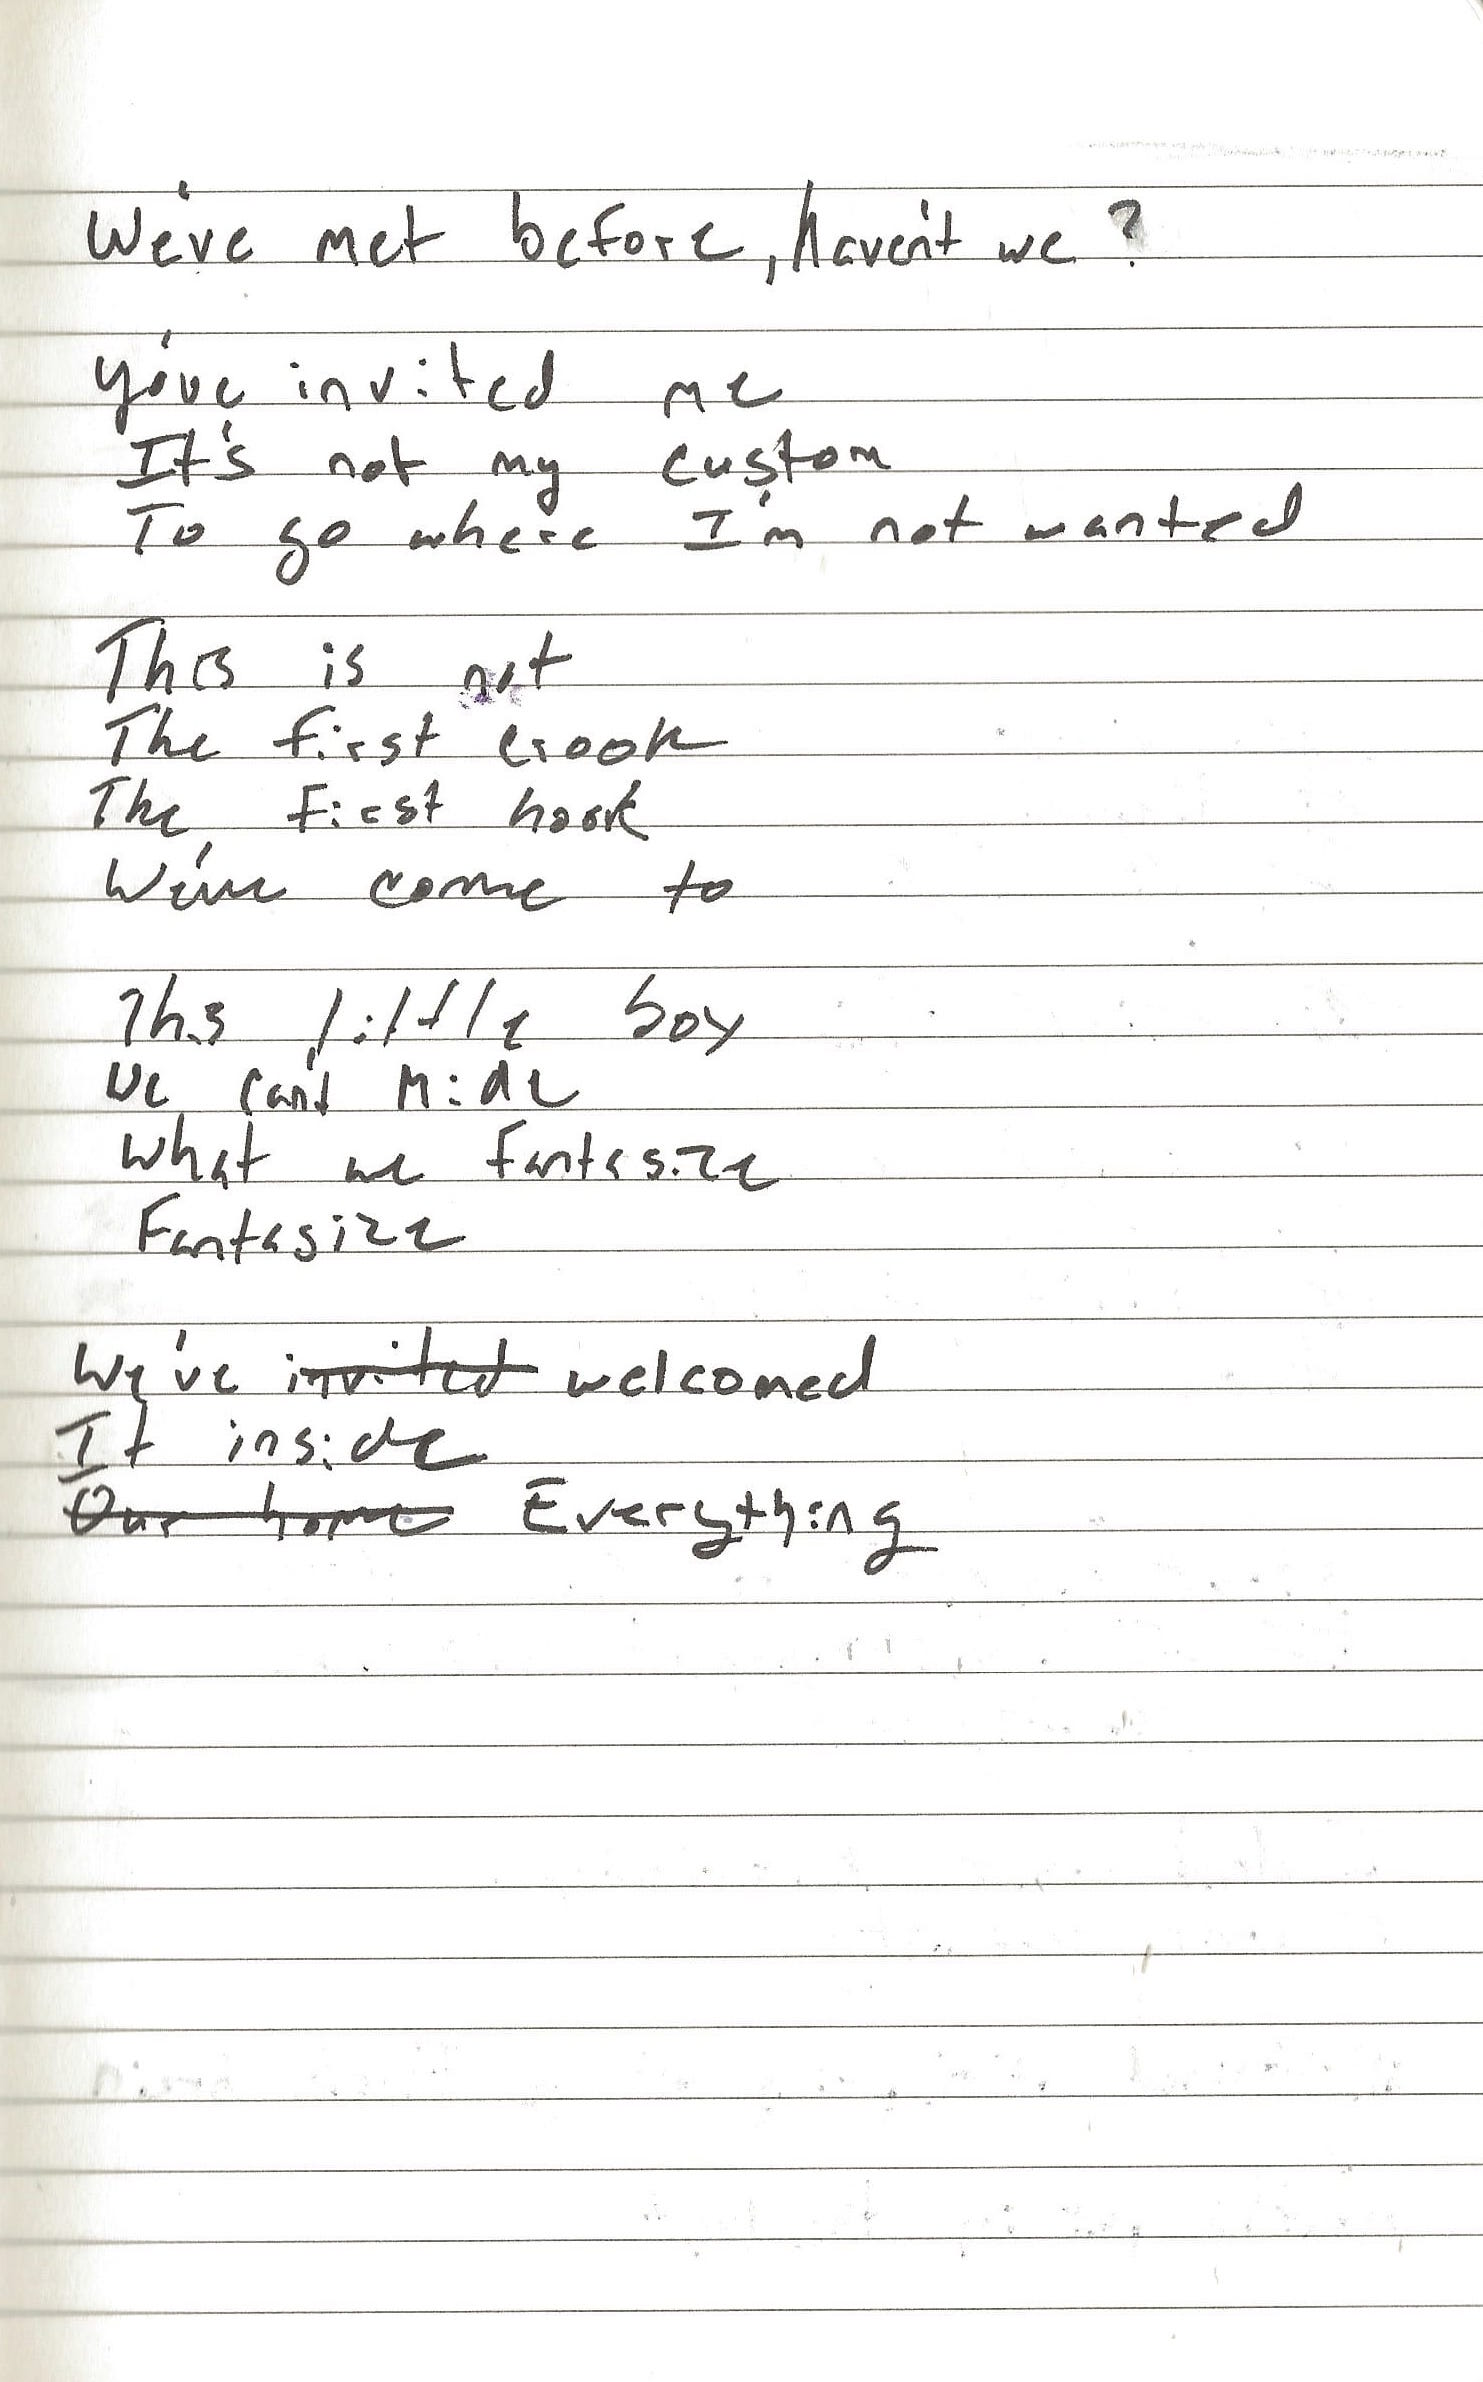 We've met before, haven't we?
You've invited me
It's not my custom
To go where I'm not wanted
This is not
The first crook
The first hook
We've come to
This little boy
We can't hide
What we fantasize
Fantasize
We've invited welcomed
It inside
Our home Everything